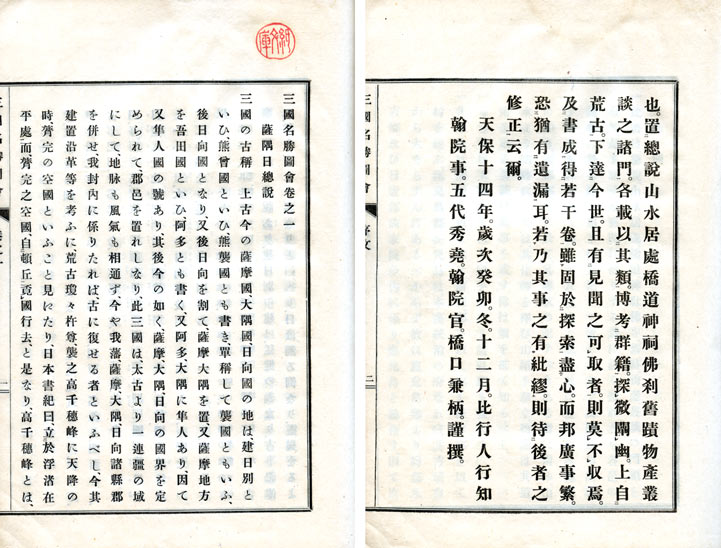 也。置總說山水居處橋道神祠佛刹舊蹟物產叢
談之諸門。各載以其類。博考群籍。探微闡幽。上自
荒古。下達今世。且有見聞之可取者。則莫不收焉。
及書成。得若干卷。雖固於探索盡心。而邦廣事繁。
恐猶有遺漏耳。若乃其事之有紕繆。則待後者之
修正云爾。
天保十四年。歲次癸卯。冬。十二月。比行人行知
翰院事。五代秀堯。翰院官。橋口兼柄。謹撰。
三國名勝圖會 序文
二
三國名勝圖會卷之一
薩隅日總說
三國の古稱 上古今の薩摩國大隅國、日向國の地は、建日別と
いひ、熊曾國といひ熊襲國とも書き、單稱して襲國ともいふ、
後日向國となり又後日向を割て薩摩大隅を置、又薩摩地方
を吾田國といひ阿多とも書く、又阿多、大隅に隼人あり、因て
又隼人國の號あり其後今の如く、薩摩、大隅日向の國界を定
められて郡邑を置れしなり此三國は、太古より一連疆の域
にして地脉も風氣も相通ず今や我藩薩摩大隅、日向諸縣郡
を併せ我封內に係りたれば、古に復せる者といふべし今其
建置沿革等を考ふに荒古瓊々杵尊襲之高千穗峰に天降の
時、膂完の空國といふこと見ぬたり、日本書紀曰立於浮渚在
平處、而膂完之空國自頓丘覓國行去、と是なり、高千穗峰とは、
三國名勝圖會